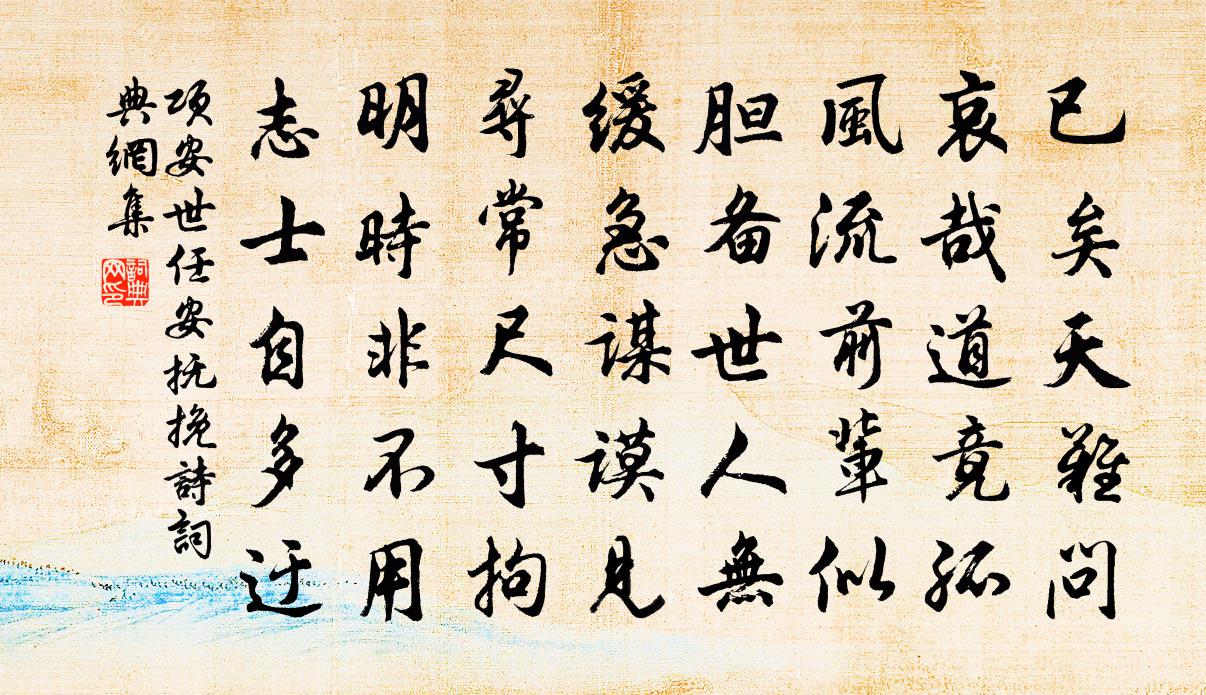 已矣天難問
哀哉道竟孤
風流前輩似
胆备世人無
緩急謀謨見
尋常尺寸拘
明時非不用
志士自多迂
項安世任安抚挽詩詞
典網集
詞典网印